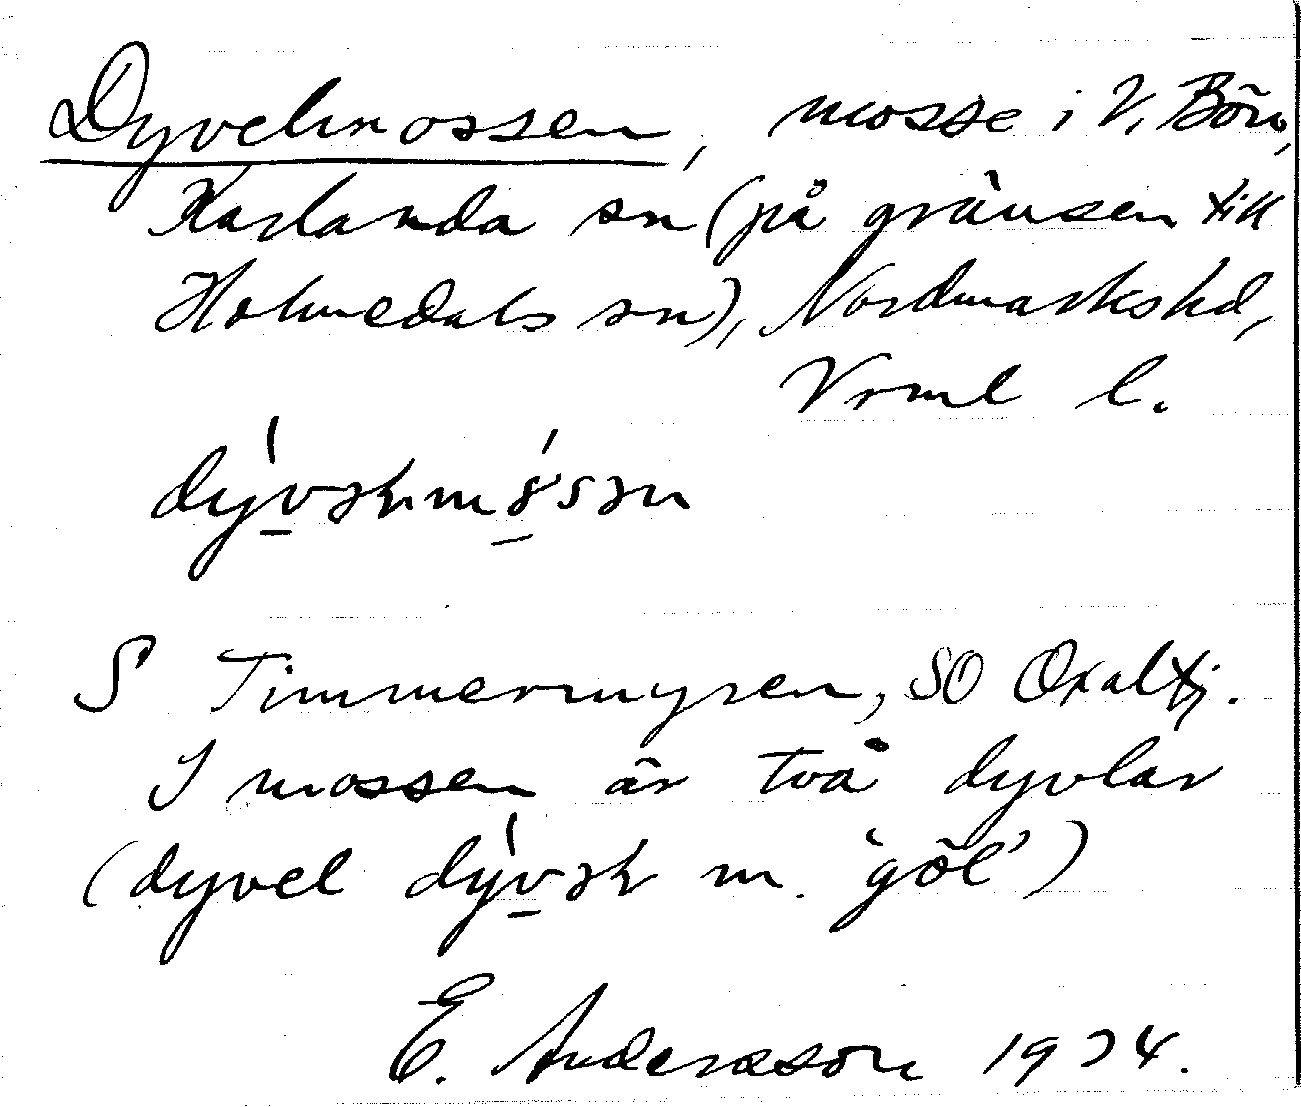 Dyvelmossen, mosse i V. Bön,
Karlanda sn (på gränsen till
Holmedals sn), Nordmarkshd,
Vrml l.
S Timmermyren, SO Oxaltj.
I mossen är två dyvlar
(dyvel m. 'göl')
E. Andersson 1934.